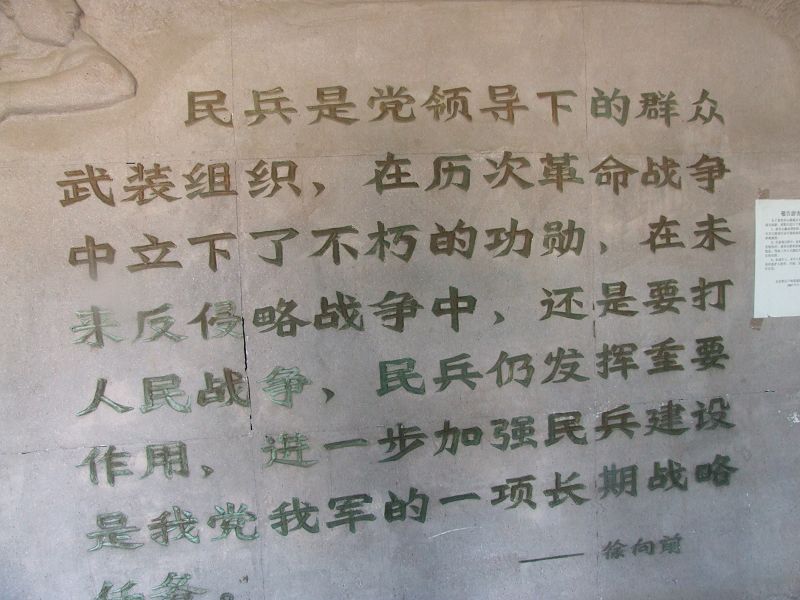 民兵是党领导下的群众
武装组织，在历次革命战争
中立下了不朽的功勋，在未
来反侵略战争中，还是要打
人民战争，民兵仍发挥重要
作用，进一步加强民兵建设
是我党我军的一项长期战略
任务。
——徐向前